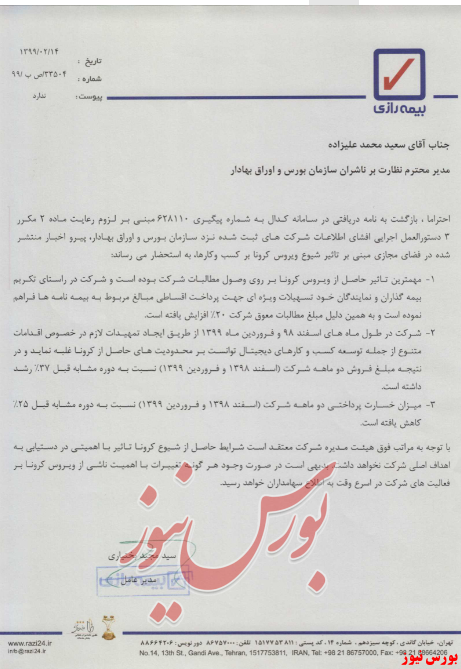 تاریخ : ۱۳۹۹/۰۲/۱۴
شماره : ۳۳۵۰۴/ص ب /۹۹
پیوست: ندارد
بیمه رازی
جناب آقای سعید محمد علیزاده
مدیر محترم نظارت بر ناشران سازمان بورس و اوراق بهادار
احتراما ، بازگشت به نامه دریافتی در سامانه کدال به شماره پیگیری ۶۲۸۱۱۰ مبنی بر لزوم رعایت ماده ۲ مکرر
۳ دستورالعمل اجرایی افشای اطلاعات شرکت های ثبت شده نزد سازمان بورس و اوراق بهادار، پیرو اخبار منتشر
شده در فضای مجازی مبنی بر تاثیر شیوع ویروس کرونا بر کسب وکارها، به استحضار می رساند:
۱- مهمترین تاثیر حاصل از ویروس کرونا بر روی وصول مطالبات شرکت بوده است و شرکت در راستای تکریم
بیمه گذاران و نمایندگان خود تسهیلات ویژه ای جهت پرداخت اقساطی مبالغ مربوط به بیمه نامه ها فراهم
نموده است و به همین دلیل مبلغ مطالبات معوق شرکت ۲۰٪ افزایش یافته است.
۲- شرکت در طول ماه های اسفند ۹۸ و فروردین ماه ۱۳۹۹ از طریق ایجاد تمهیدات لازم در خصوص اقدامات
متنوع از جمله توسعه کسب و کارهای دیجیتال توانست بر محدودیت های حاصل از کرونا غلبه نماید و در
نتیجه مبلغ فروش دو ماهه شرکت (اسفند ۱۳۹۸ و فروردین ۱۳۹۹) نسبت به دوره مشابه قبل ۳۷٪ رشد
داشته است.
۳- میزان خسارت پرداختی دو ماهه شرکت (اسفند ۱۳۹۸ و فروردین ۱۳۹۹) نسبت به دوره مشابه قبل ۲۵٪
کاهش یافته است.
با توجه به مراتب فوق هیئت مدیره شرکت معتقد است شرایط حاصل از شیوع کرونا تاثیر با اهمیتی در دستیابی به
اهداف اصلی شرکت نخواهد داشت. بدیهی است در صورت وجود هر گونه تغییرات با اهمیت ناشی از ویروس کرونا بر
فعالیت های شرکت در اسرع وقت به اطلاع سهامداران خواهد رسید.
بورس نیوز
سید مجید بختیاری
مدیر عامل
تهران، خیابان گاندی ، کوچه سیزدهم ، شماره ۱۴ ، کد پستی : ۱۵۱۷۷۵۳۸۱۱ تلفن: ۸۶۷۵۷۰۰۰ دورنویس: ۸۸۶۶۴۲۰۶
No.14, 13th St., Gandi Ave., Tehran, 1517753811, IRAN, Tel: +98 21 86757000, Fax: +98 21 88664206
www.razi24.ir
info@razi24.ir
بورس نیوز